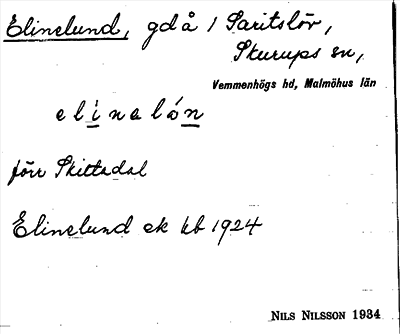 Elinelund, gd å 1 Saritslöv,
Skurups sn,
Vemmenhögs hd, Malmöhus län
elinelón
förr Skittadal
Elinelund ek kb 1924
NILS NILSSON 1934